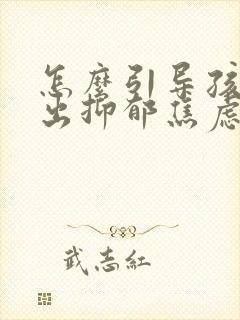 怎麼引导孩
出抑郁焦虑
武志紅